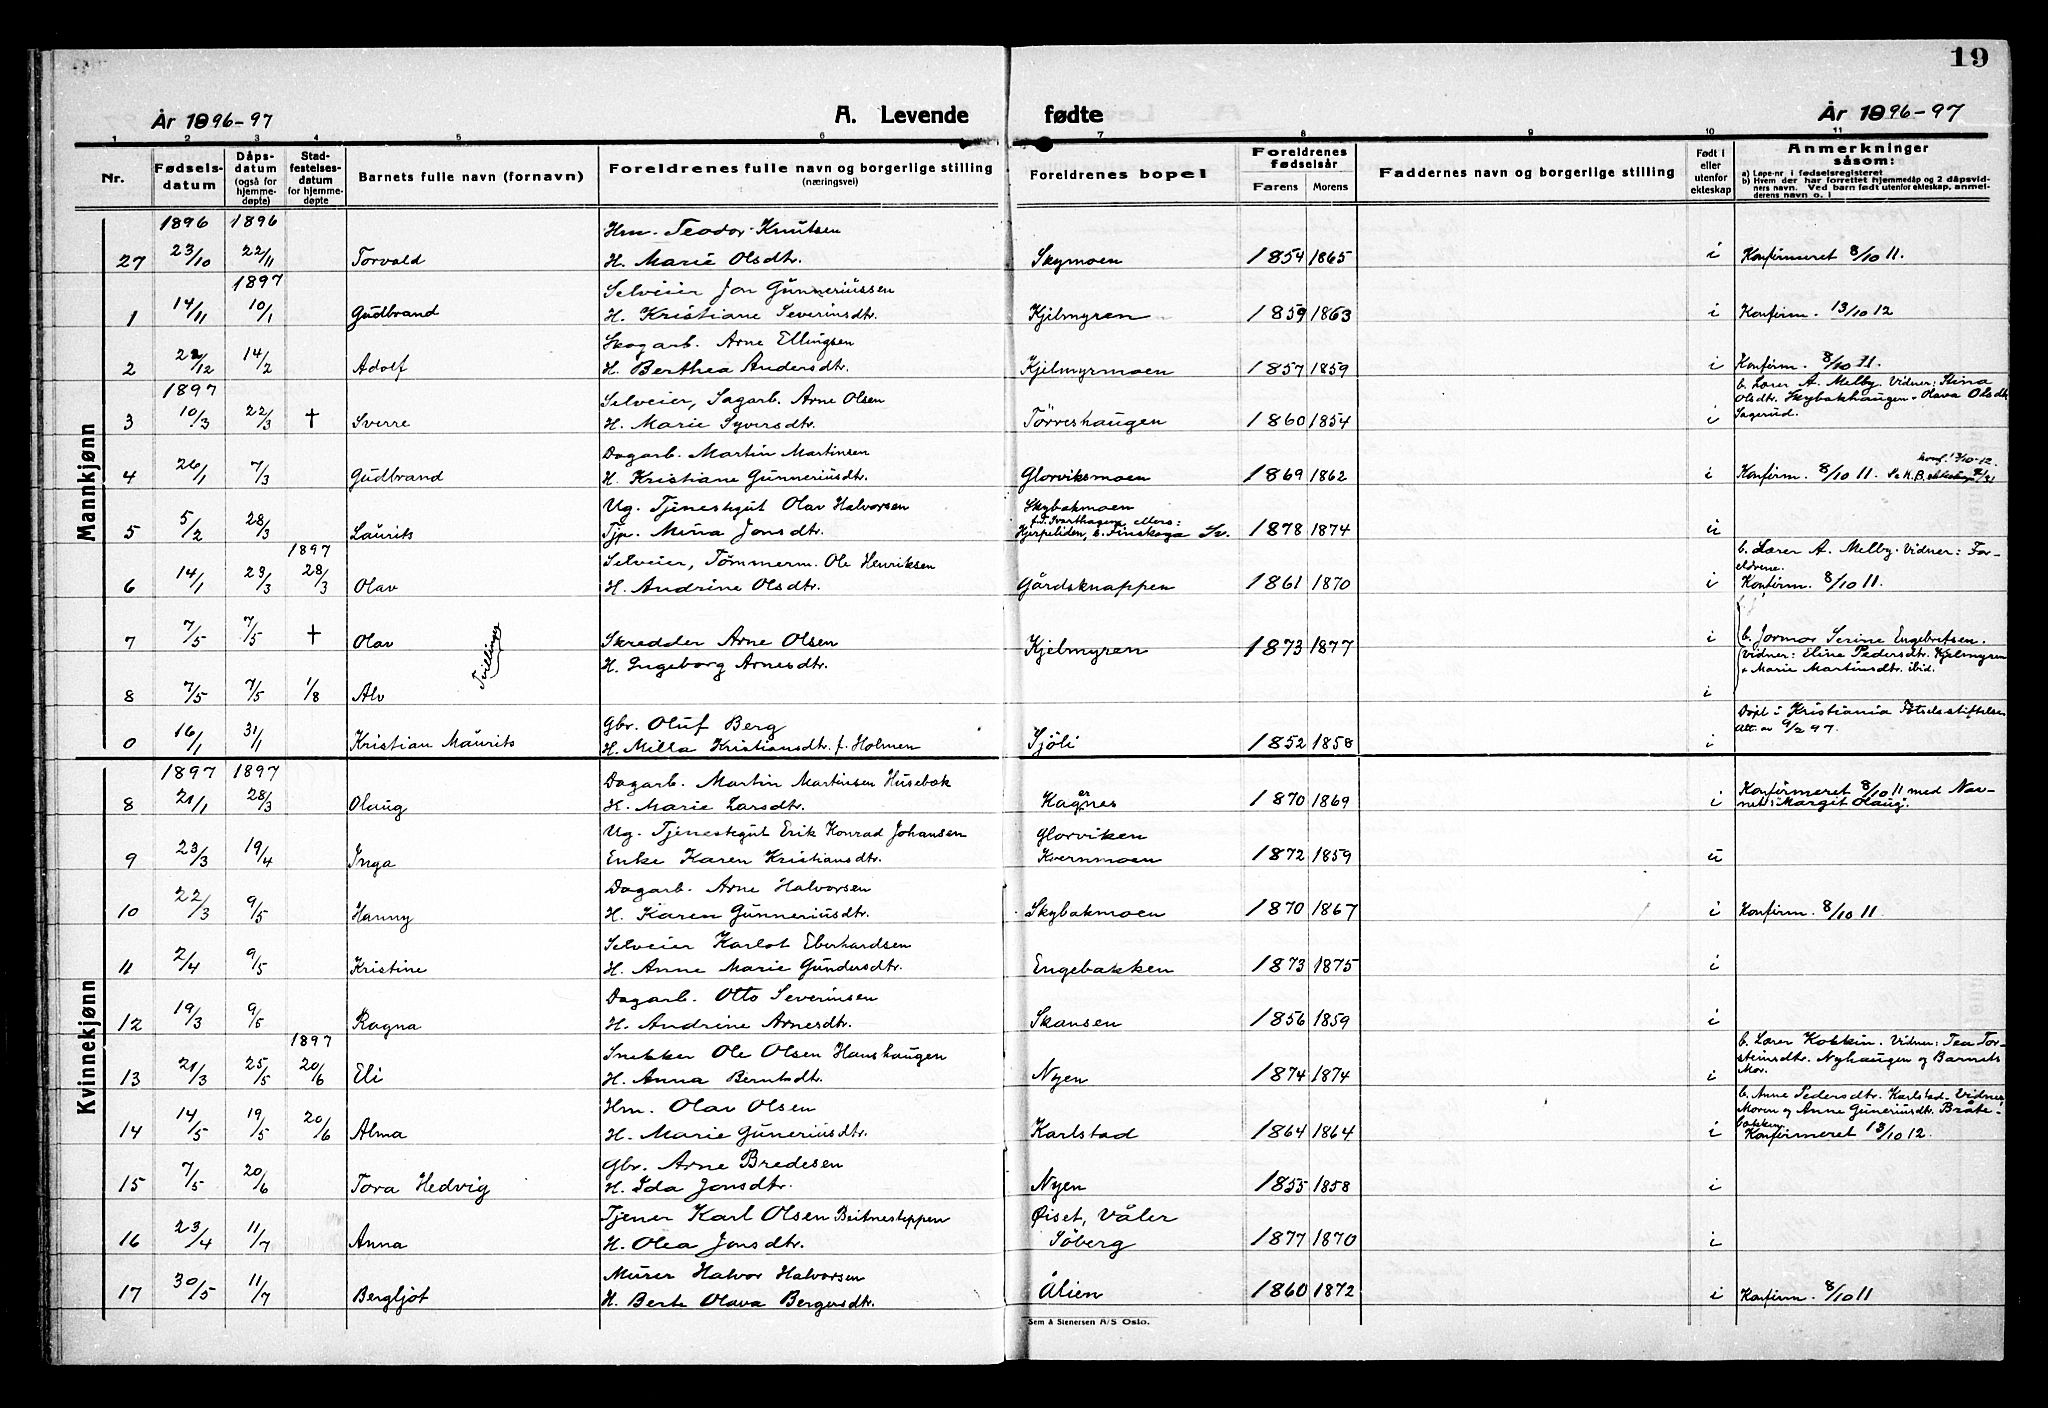 19
År 1896-97 A. Levende fødte År 1896-97
1 2 3 4 5 6 7 8 9 10 11
Nr. Fødsels-datum Dåps-datum (også for hjemme-døpte) Stad-festelses-datum for hjemme-døpte Barnets fulle navn (fornavn) Foreldrenes fulle navn og borgerlige stilling (næringsvei) Foreldrenes bopel Foreldrenes fødselsår Farens Morens Faddernes navn og borgerlige stilling Født i eller utenfor ekteskap Anmerkninger såsom:
a) Løpe-nr i fødselsregisteret
b) Hvem der har forrettet hjemmedåp og 2 dåpsvid-
ners navn. Ved barn født utenfor ekteskap, anmel-
derens navn o. l
Mannkjønn
1896 1896 Hm. Teodor Knutsen
27 23/10 22/11 Torvald H. Marie Olsdtr. Skymoen 1854 1865 i Konfirmeret 8/10 11.
1897 Selveier Jon Gunneriussen
1 14/11 10/1 Gudbrand H. Kristiane Severinsdtr. Kjelmyren 1859 1863 i Konfirm. 13/10 12
Skogarb. Arne Ellingsen
2 22/12 14/2 Adolf H. Berthea Andersdtr. Kjelmyrmoen 1857 1859 i Konfirm. 8/10 11.
1897 Selveier, Sagarb. Arne Olsen b. Lærer A. Melby. Vidner: Stina
Olsdtr. Skybakhaugen - Olava Olsdtr
3 10/3 22/3 † Sverre H. Marie Syversdtr. Törreshaugen 1860 1854 i Sagerud.
Dagarb. Martin Martinsen konf. 13/10-12.
4 26/1 7/3 Gudbrand H. Kristiane Gunneriusdtr. Glorviksmoen 1869 1862 i Konfirm. 8/10 11.
Ug. Tjenestegut Olav Halvorsen Skybakmoen
5 5/2 28/3 Laurits Tjp. Mina Jonsdtr. Hjerpeliden, b. Finskoga Sv. 1878 1874 u
1897 Selveier, Tömmerm. Ole Henriksen b. Lærer A. Melby. Vidner: For-
eldrene.
6 14/1 23/3 28/3 Olav H. Andrine Olsdtr. Gårdsknappen 1861 1870 i Konfirm. 8/10 11.
7 7/5 7/5 † Olav Tvillinger Skredder Arne Olsen Kjelmyren 1873 1877 i b. Jormor Serine Engebretsen.
H. Ingeborg Arnesdtr. Vidner: Eline Pedersdtr. Kjelmyren
+ Marie Martinsdtr. ibid.
8 7/5 7/5 1/8 Alv i
Gbr. Oluf Berg Döpt i Kristiania Fötselsstiftelse
0 16/1 31/1 Kristian Maurits H. Milla Kristiansdtr. f. Holmen Sjöli 1852 1858 i Att. av 9/2 97.
Kvinnekjønn
1897 1897 Dagarb. Martin Martinsen Husebak Konfirmeret 8/10 11 med Nav-
8 21/1 28/3 Olaug H. Marie Larsdtr. Kagnes er 1870 1869 i net: "Margit Olaug".
Ug. Tjenestegut Erik Konrad Johansen Glorviken
9 23/3 19/4 Inga Enke Karen Kristiansdtr. Kvernmoen 1872 1859 u
Dagarb. Arne Halvorsen
10 22/3 9/5 Hanny H. Karen Gunneriusdtr. Skybakmoen 1870 1867 i Konfirm. 8/10 11.
Selveier Karlot Eberhardsen
11 2/4 9/5 Kristine H. Anne Marie Gundersdtr. Engebakken 1873 1875 i
Dagarb. Otto Severinsen
12 19/3 9/5 Ragna H. Andrine Arnesdtr. Skansen 1856 1859 i
1897 Snekker Ole Olsen Hanshaugen b. Lærer Kokkin. Vidner: Tea Tor-
steinsdtr. Nyhaugen og Barnets
13 21/3 25/5 20/6 Eli H. Anna Berntsdtr. Nyen 1874 1874 i Mor.
Hm. Olav Olsen b. Anne Pedersdtr. Karlstad. Vidner
Moren og Anne Guneriusdtr. Bråte-
bakken
14 14/5 19/5 20/6 Alma H. Marie Guneriusdtr. Karlstad 1864 1864 i Konfirmeret 13/10 12.
Gbr. Arne Bredesen
15 7/5 20/6 Tora Hedvig H. Ida Jonsdtr. Nyen 1855 1858 i
Tjener Karl Olsen Beitnesteppen Øiset, Våler
16 23/4 11/7 Anna H. Olea Jonsdtr. Söberg 1877 1870 i
Murer Halvor Halvorsen
17 30/5 11/7 Bergljot H. Berte Olava Bergersdtr. Ålien 1860 1872 i Konfirm. 8/10 11
Sem & Stenersen A/S Oslo.